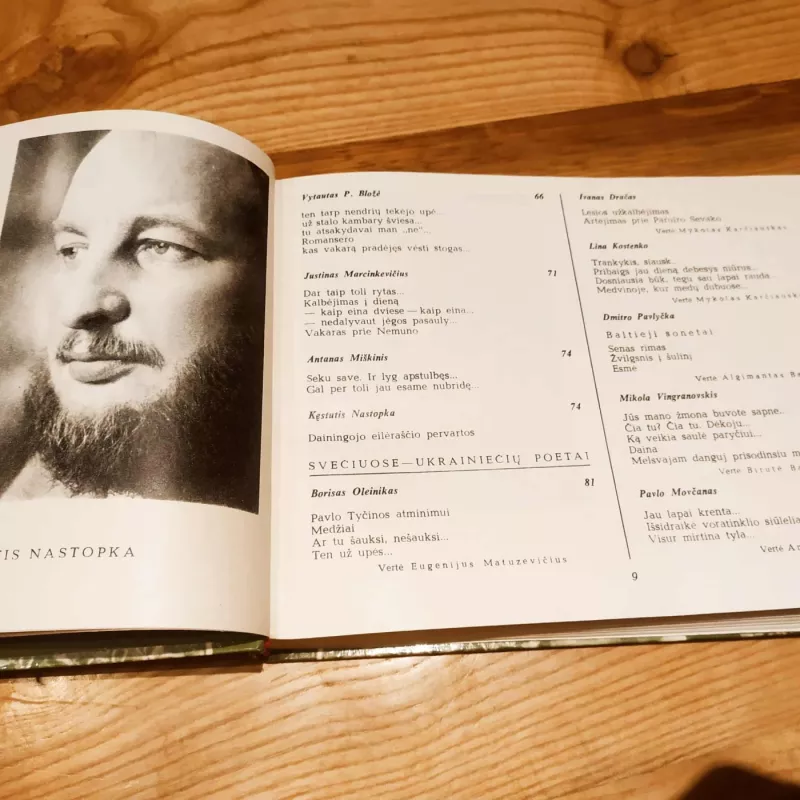 TIS NASTOPKA
Vytautas P. Bložė 66
ten tarp nendrių tekėjo upė...
už stalo kambary šviesa...
tu atsakydavai man „ne"...
Romansero
kas vakarą pradėjęs vėsti stogas...
Justinas Marcinkevičius 71
Dar taip toli rytas...
Kalbėjimas į dieną
— kaip eina dviese — kaip eina...
— nedalyvaut jėgos pasauly...
Vakaras prie Nemuno
Antanas Miškinis 74
Seku save. Ir lyg apstulbęs...
Gal per toli jau esame nubridę...
Kęstutis Nastopka 74
Dainingojo eilėraščio pervartos
SVEČIUOSE—UKRAINIEČIŲ POETAI
Borisas Oleinikas 81
Pavlo Tyčinos atminimui
Medžiai
Ar tu šauksi, nešauksi...
Ten už upės...
Vertė Eugenijus Matuzevičius
Ivanas Dračas
Lesios užkalbėjimas
Artėjimas prie Tarašo Ševčenko
Vertė Mykolas Karčiauskas
Lina Kostenko
Trankykis, siausk...
Pribaigs jau dieną debesys niūrūs...
Dosniausia būk, tegu sau lapai rauda...
Medvinoje, kur medų dubuose...
Vertė Mykolas Karčiausk
Dmitro Pavlyčka
Baltieji sonetai
Senas rimas
Žvilgsnis į šulinį
Esmė
Vertė Algimantas Ba
Mikola Vingranovskis
Jūs mano žmona buvote sapne...
Čia tu? Čia tu. Dėkoju...
Ką veikia saulė paryčiui...
Daina
Melsvajam dangųj prisodinsiu m
Vertė Birutė Ba
Pavlo Movčanas
Jau lapai krenta...
Išsidraikė voratinklio siūlelia
Visur mirtina tyla...
Vertė A
9